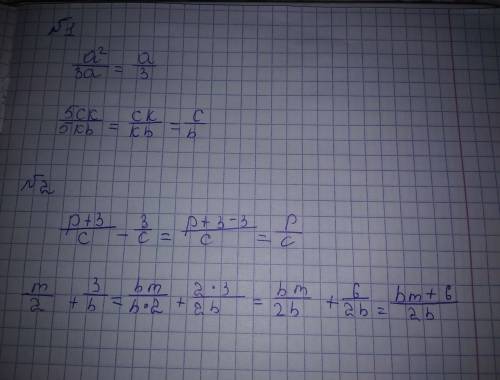 №1
a²/3a = a/3
5ck/5kb = ck/kb = c/b
№2
p+3/c - 3/c = p+3-3/c = p/c
m/2 + 3/b = bm/b·2 + 2·3/2b = bm/2b + 6/2b = bm+6/2b